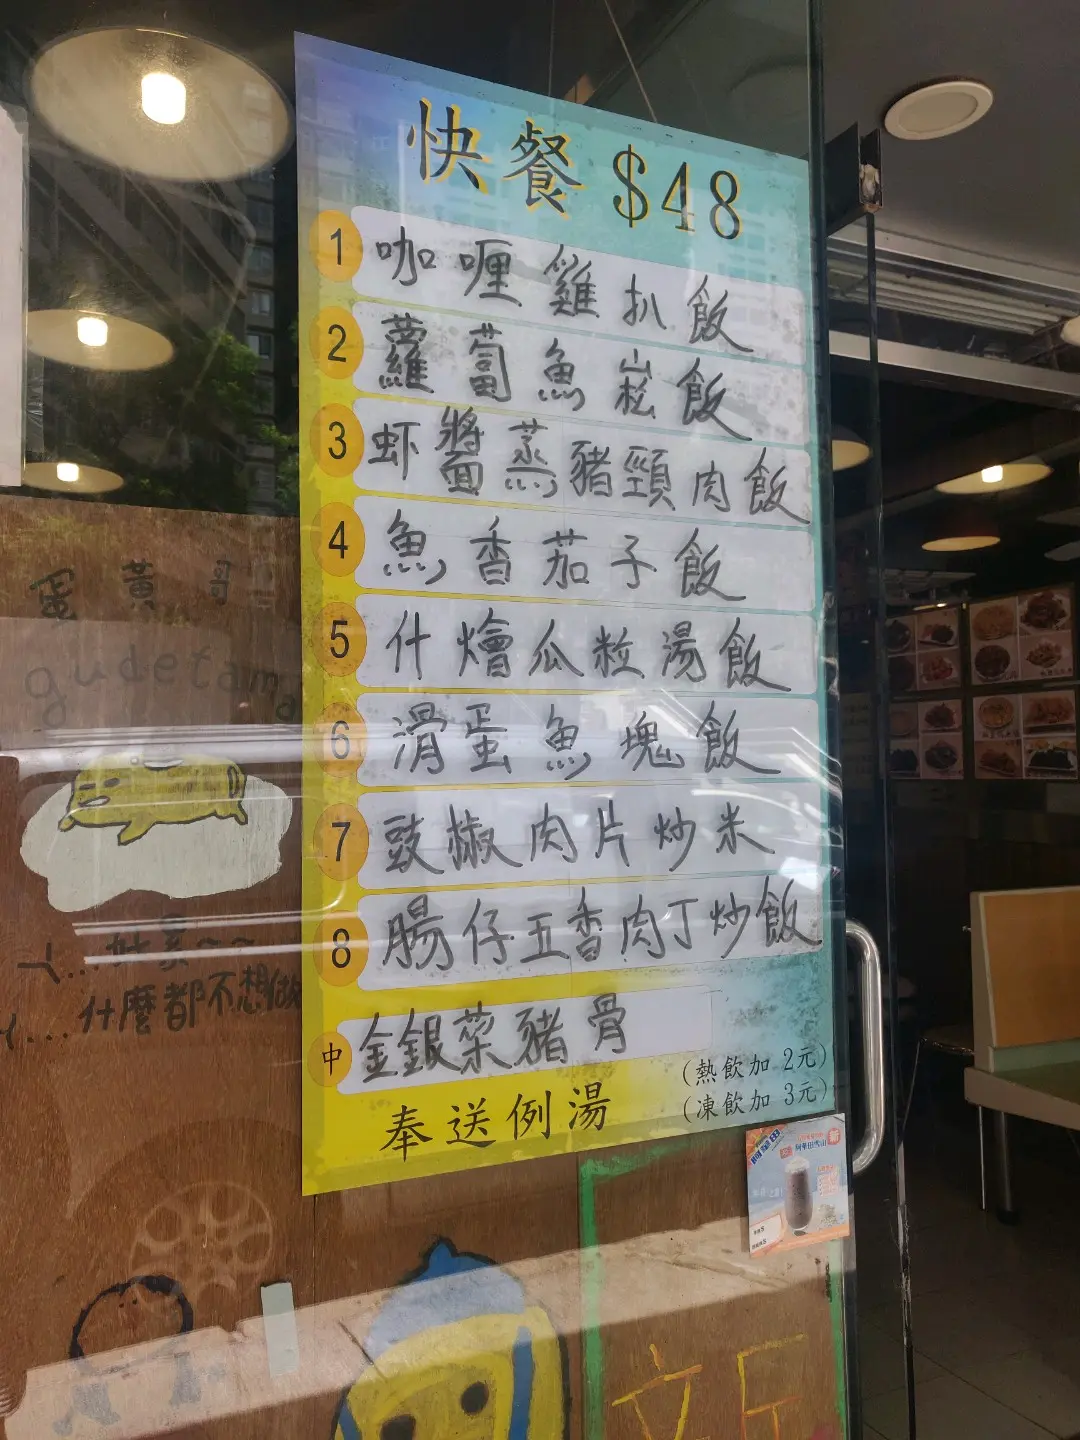 快餐 $48
1 咖喱雞扒飯
2 蘿蔔魚崧飯
3 虾醬蒸豬頸肉飯
4 魚香茄子飯
5 什燴瓜粒湯飯
6 滑蛋魚塊飯
7 豉椒肉片炒米
8 腸仔五香肉丁炒飯
中 金銀菜豬骨
(熱飲加 2元)
奉送例湯
(凍飲加 3元)
蛋黃哥
gudetama
什麼都不想做